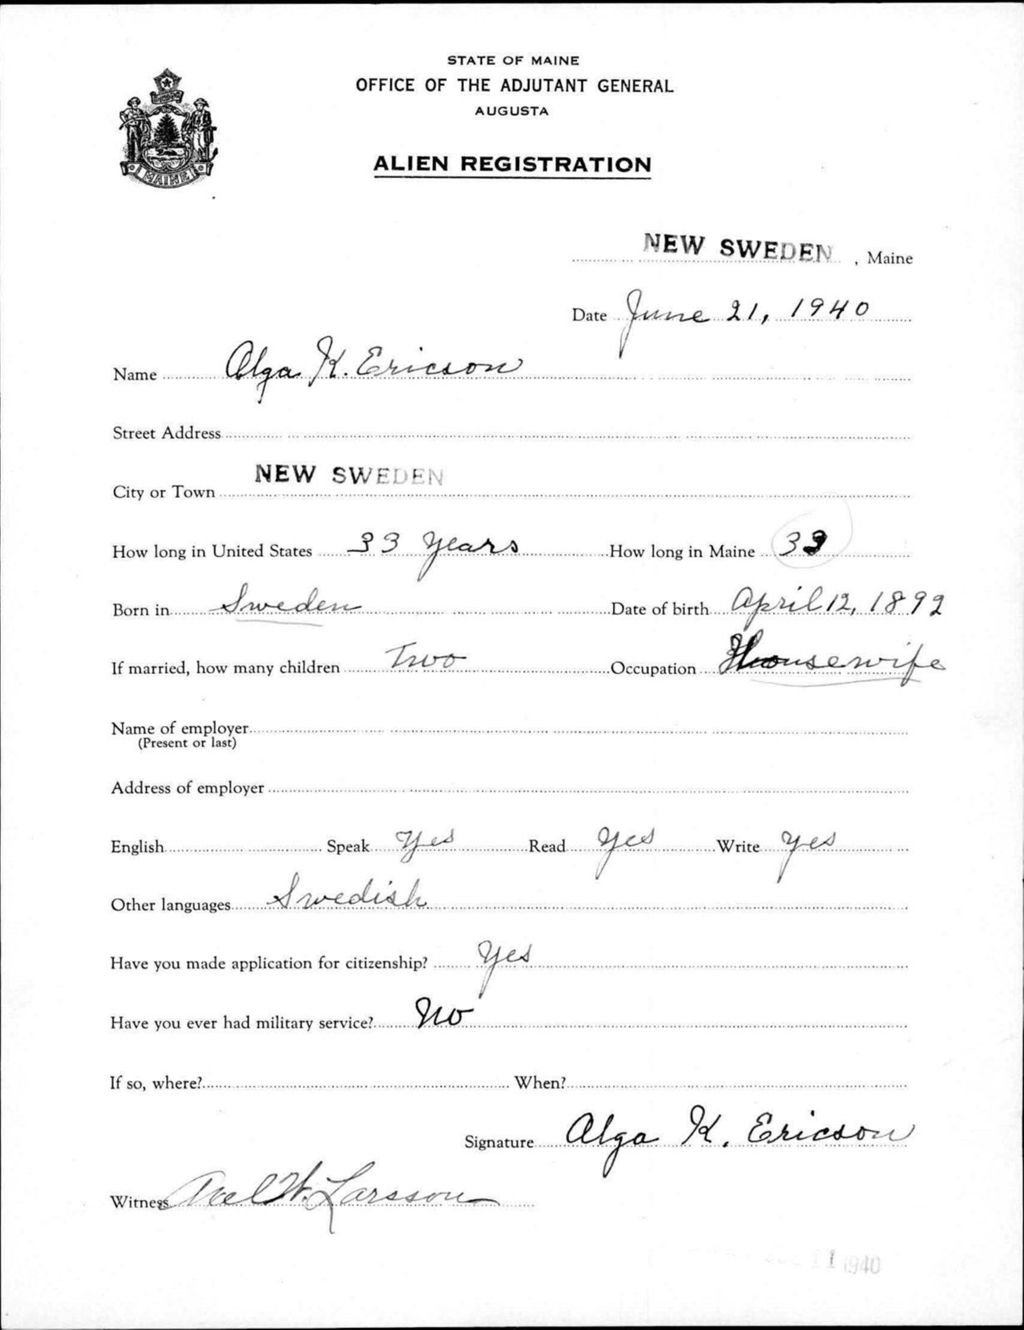 STATE OF MAINE
OFFICE OF THE ADJUTANT GENERAL
AUGUSTA
ALIEN REGISTRATION
MAINE
NEW SWEDEN, Maine
Date June 21, 1940
Name Olga K. Ericson
Street Address
City or Town NEW SWEDEN
How long in United States 33 years How long in Maine 33
Born in Sweden Date of birth April 12, 1892
If married, how many children Two Occupation Housewife
Name of employer
(Present or last)
Address of employer
English Speak Yes Read Yes Write Yes
Other languages Swedish
Have you made application for citizenship? Yes
Have you ever had military service? No
If so, where? When?
Signature Olga K. Ericson
Witness Axel W. Larsson
1 1940